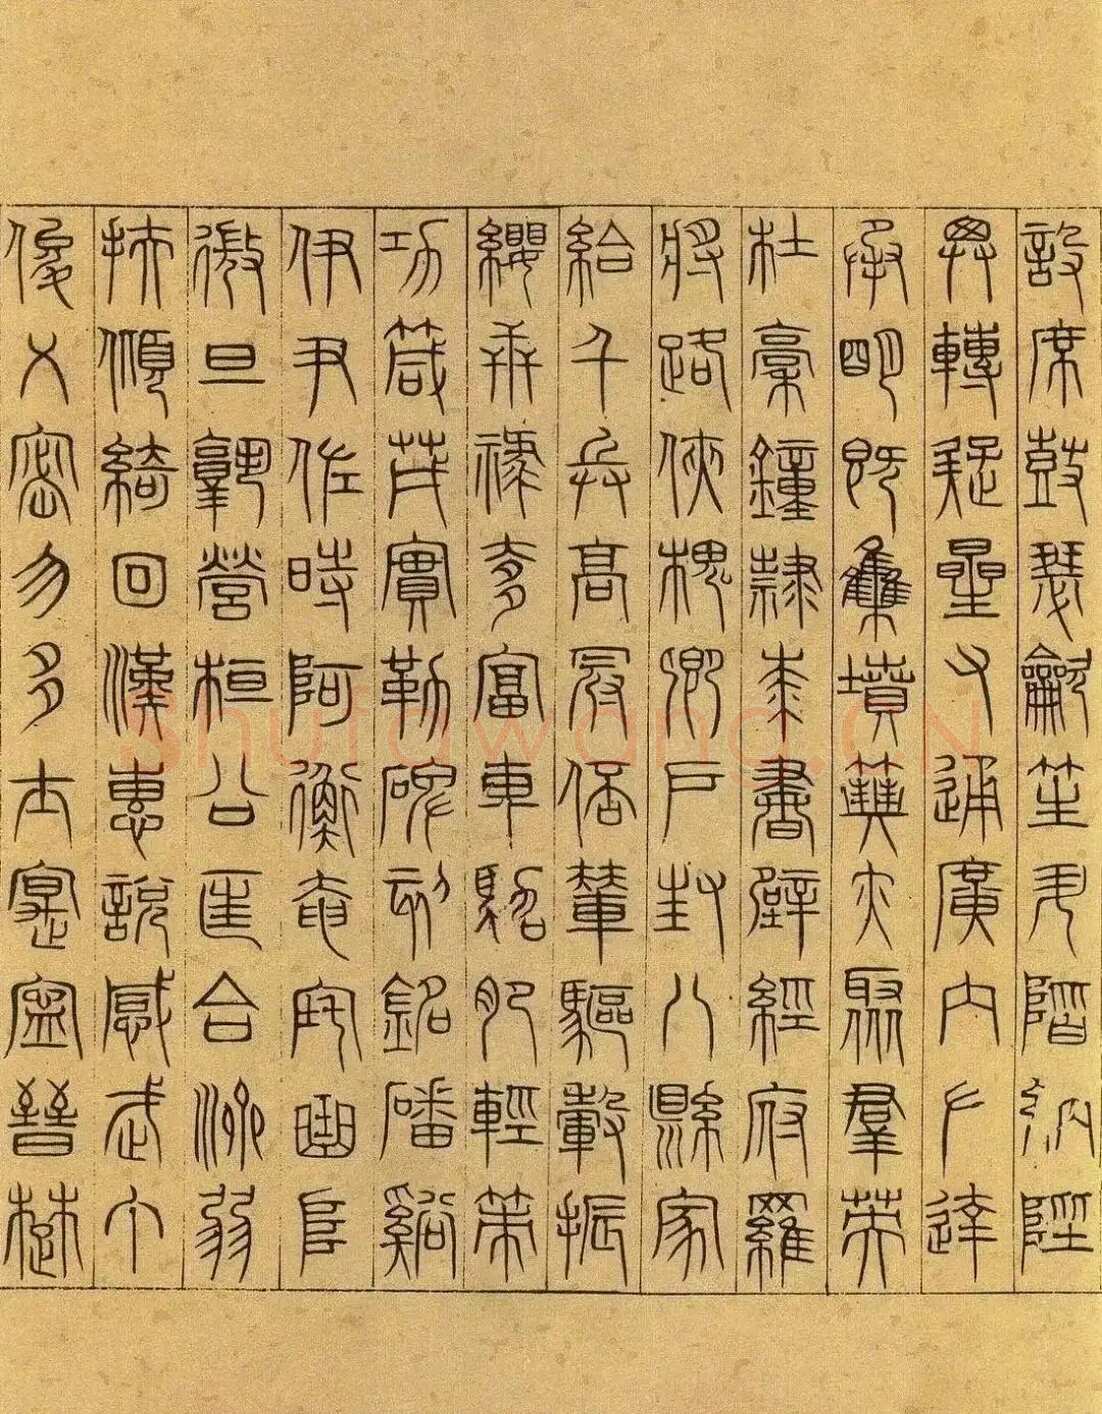 設席鼓瑟龡笙升階納陛
弁轉疑星右通廣內左達
承明既雧墳典亦聚羣英
杜稾鐘隸漆書壁經府羅
將路俠槐卿戶封八縣家
給千兵高冠倍輦驅轂振
纓世祿侈富車駕肥輕策
功茂實勒碑刻銘磻谿
伊尹佐時阿衡奄宅曲阜
微旦孰營桓公匡合濟弱
扶傾綺回漢惠說感武丁
俊乂密勿多士寔寧晉楚
shufawang.cn